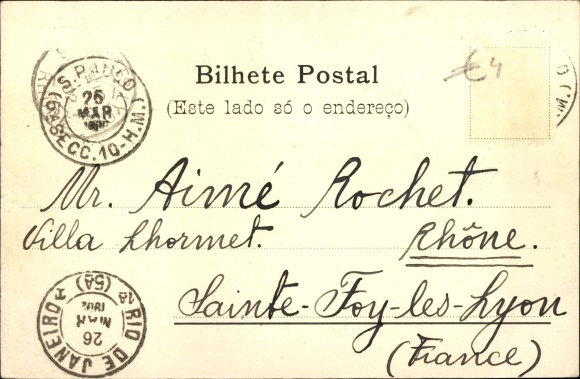 Bilhete Postal
(Este lado só o endereço)
€4
S. PAULO
25
MAR
(5ªSECC. 10-H.M.)
Mr. Aimé Rochet.
Villa Lhormet.
Rhône.
Sainte-Foy-les-Lyon
(France)
RIO DE JANEIRO
(5ª)
26
MAR